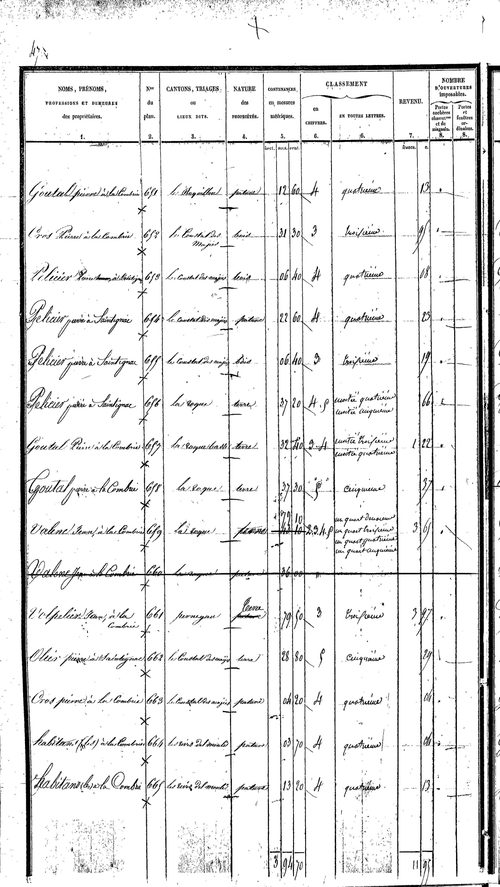 NOMS, PRÉNOMS,
PROFESSIONS ET DEMEURES
des propriétaires.
1.
Nos
du
plan.
2.
CANTONS, TRIAGES
ou
LIEUX DITS.
3.
NATURE
des
PROPRIÉTÉS.
4.
CONTENANCES
en mesures
métriques.
5.
CLASSEMENT
en
CHIFFRES.
6.
EN TOUTES LETTRES.
6.
REVENU.
7.
francs. c.
NOMBRE
D'OUVERTURES
imposables.
Portes
cochères
et de
magasin.
8.
Portes
et
fenêtres
ordinaires.
8.
Goutal pierre à la Combrie 651 pature 12 60 4 quatrième 13
Cros Pierre à la Combrie 652 le Constal des Mages bois 31 30 3 troisième 95
Pelicier à Saintignac 653 le Constal des mages bois 06 40 4 quatrième 08
Pelicier pierre à Saintignac 654 le Constal des mages pature 22 60 4 quatrième 23
Pelicier pierre à Saintignac 655 le Constal des mages bois 06 40 3 troisième 19
Pelicier pierre à Saintignac 656 la rogue terre 37 20 4.5 moitié quatrième moitié cinquième 66
Goutal Pierre à la Combrie 657 la rogue terre 32 40 3.4 moitié troisième moitié quatrième 1 22
Goutal pierre à la Combrie 658 la rogue terre 37 30 5 cinquième 37
Valenc Jean à la Combrie 659 la rogue 79 10 2.3.4.5 un quart deuxieme un quart troisième un quart quatrième un quart cinquième 3 65
Valenc Jean à la Combrie 660 la rogue pature 36 00
Volpelier Jean, à la Combrie 661 Terre 79 50 3 troisième 3 97
Olier pierre à Saintignac 662 le Constal des mages terre 28 80 5 cinquième 29
Cros pierre à la Combrie 663 le Constal des mages pature 04 20 4 quatrième 04
habitans (les) à la Combrie 664 pature 03 70 4 quatrième 04
habitans (les) à la Combrie 665 pature 13 20 4 quatrième 13
3 94 70 11 95